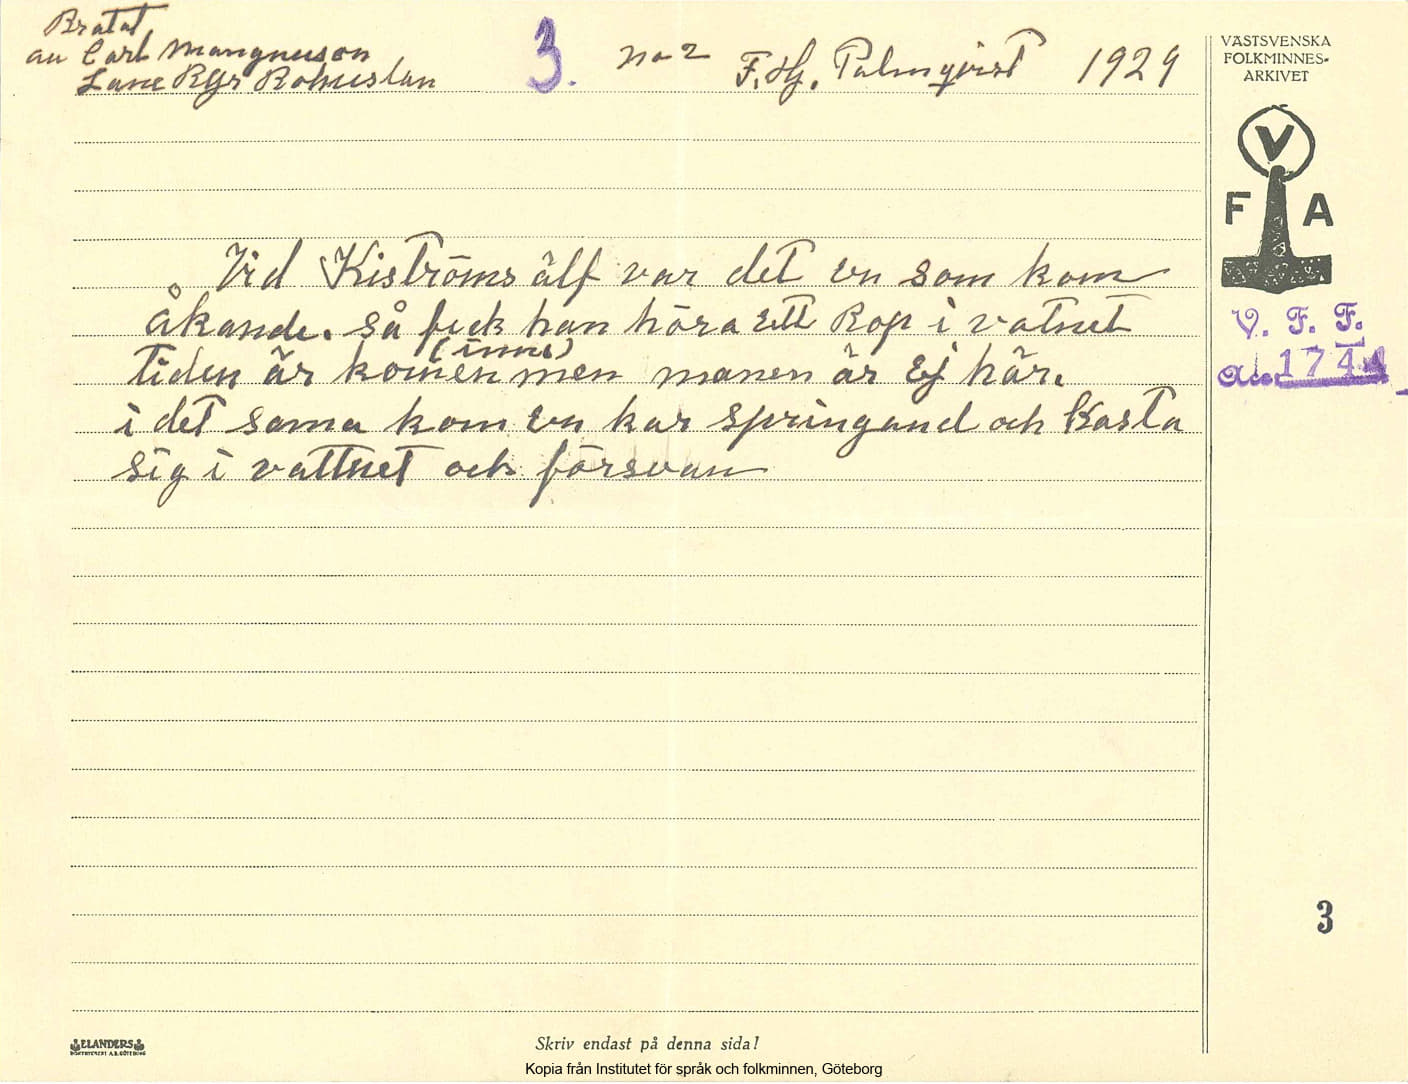 Bratat
au Carl Mangnuson
Lane Rys Bohuslan
3.
no 2
F. Hj. Palmqvist 1929
VÄSTSVENSKA
FOLKMINNES-
ARKIVET
V
F A
V. F. F.
Vid Kiströms älf var det en som kom
åkande. så fick han höra ett Rop i vatnet
(inne)
tiden är komen men manen är Ej här.
i det sama kom en kar springand och Kasta
sig i vattnet och försvan
3
ELANDERS
Skriv endast på denna sida!
Kopia från Institutet för språk och folkminnen, Göteborg